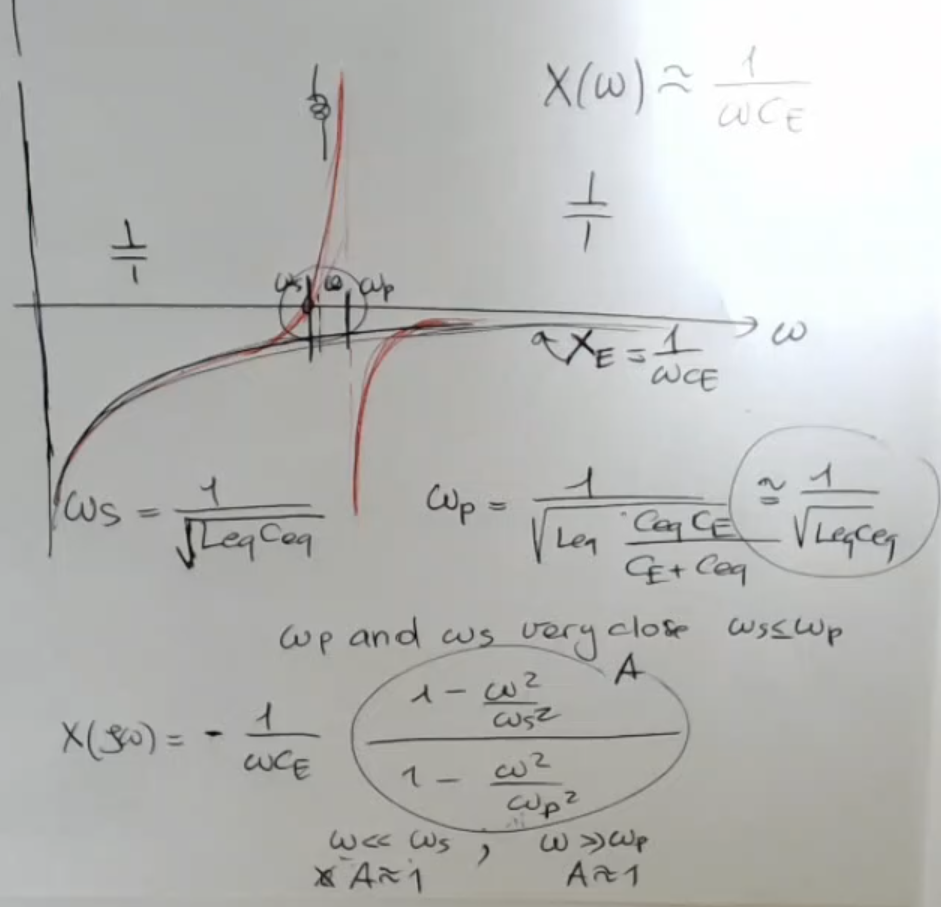 X(ω) ≈ 1/(ωC_E)
ωs ω ωp
ω
X_E = 1/(ωC_E)
ωs = 1/√(Leq Ceq)
ωp = 1/√(Leq (Ceq C_E)/(C_E + Ceq)) ≃ 1/√(Leq Ceq)
ωp and ωs very close ωs ≤ ωp
A
X(jω) = - 1/(ωC_E) (1 - ω²/ωs²)/(1 - ω²/ωp²)
ω << ωs , ω >> ωp
A ≈ 1 A ≈ 1